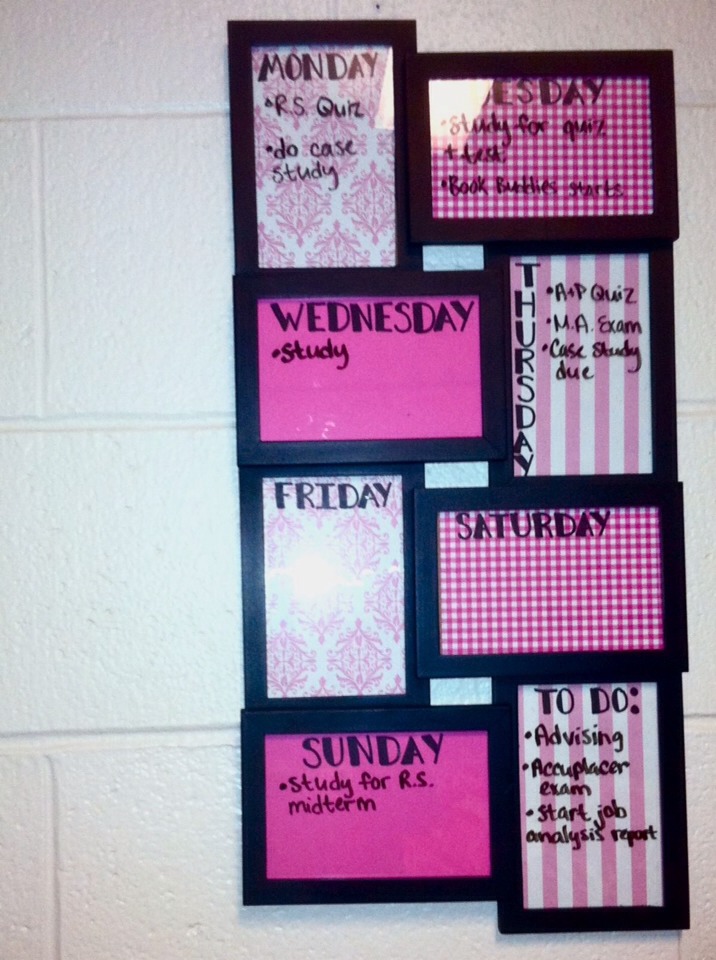 MONDAY
•R.S. Quiz
•do case
study
TUESDAY
•Study for quiz
+ test.
•Book Buddies starts
WEDNESDAY
•study
THURSDAY
•A+P Quiz
•M.A. Exam
•Case Study
due
FRIDAY
SATURDAY
SUNDAY
•study for R.S.
midterm
TO DO:
•Advising
•Accuplacer
exam
•start job
analysis report